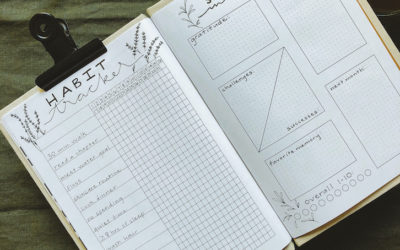 HABIT
tracker
30 min walk
read a chapter
meet water goal
floss
skincare routine
cook dinner
no spending
quiet time
>8 hrs of sleep
gratitude:
challenges:
successes:
next month:
favorite memory:
overall 1-10